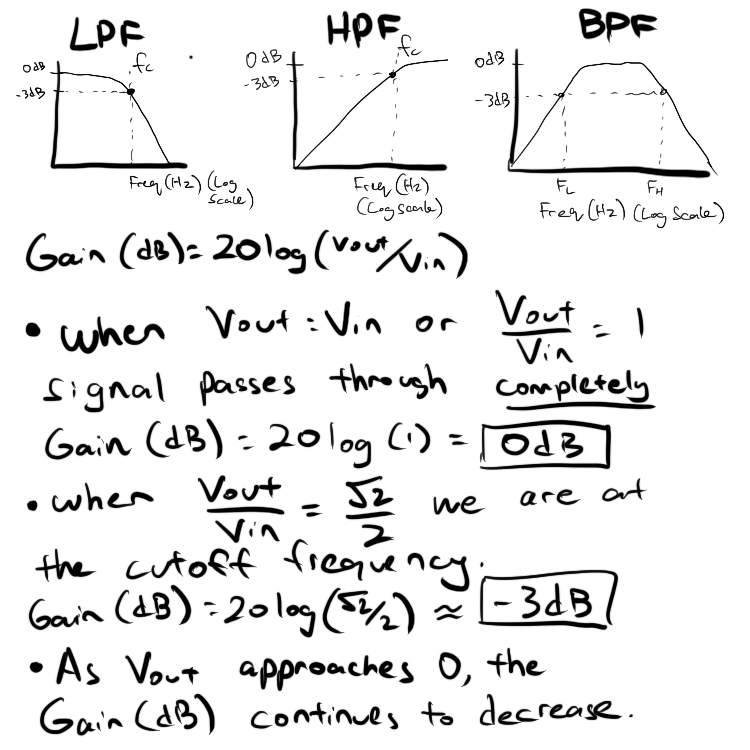 LPF
HPF
BPF
fc
0dB
-3dB
Freq (Hz) (Log
Scale)
fc
0dB
-3dB
Freq (Hz)
(Log Scale)
0dB
-3dB
FL
FH
Freq (Hz) (Log Scale)
Gain (dB) = 20log(Vout/Vin)
• when Vout = Vin or Vout/Vin = 1
signal passes through completely
Gain (dB) = 20log(1) = 0dB
• when Vout/Vin = √2/2 we are at
the cutoff frequency.
Gain (dB) = 20log(√2/2) ≈ -3dB
• As Vout approaches 0, the
Gain (dB) continues to decrease.